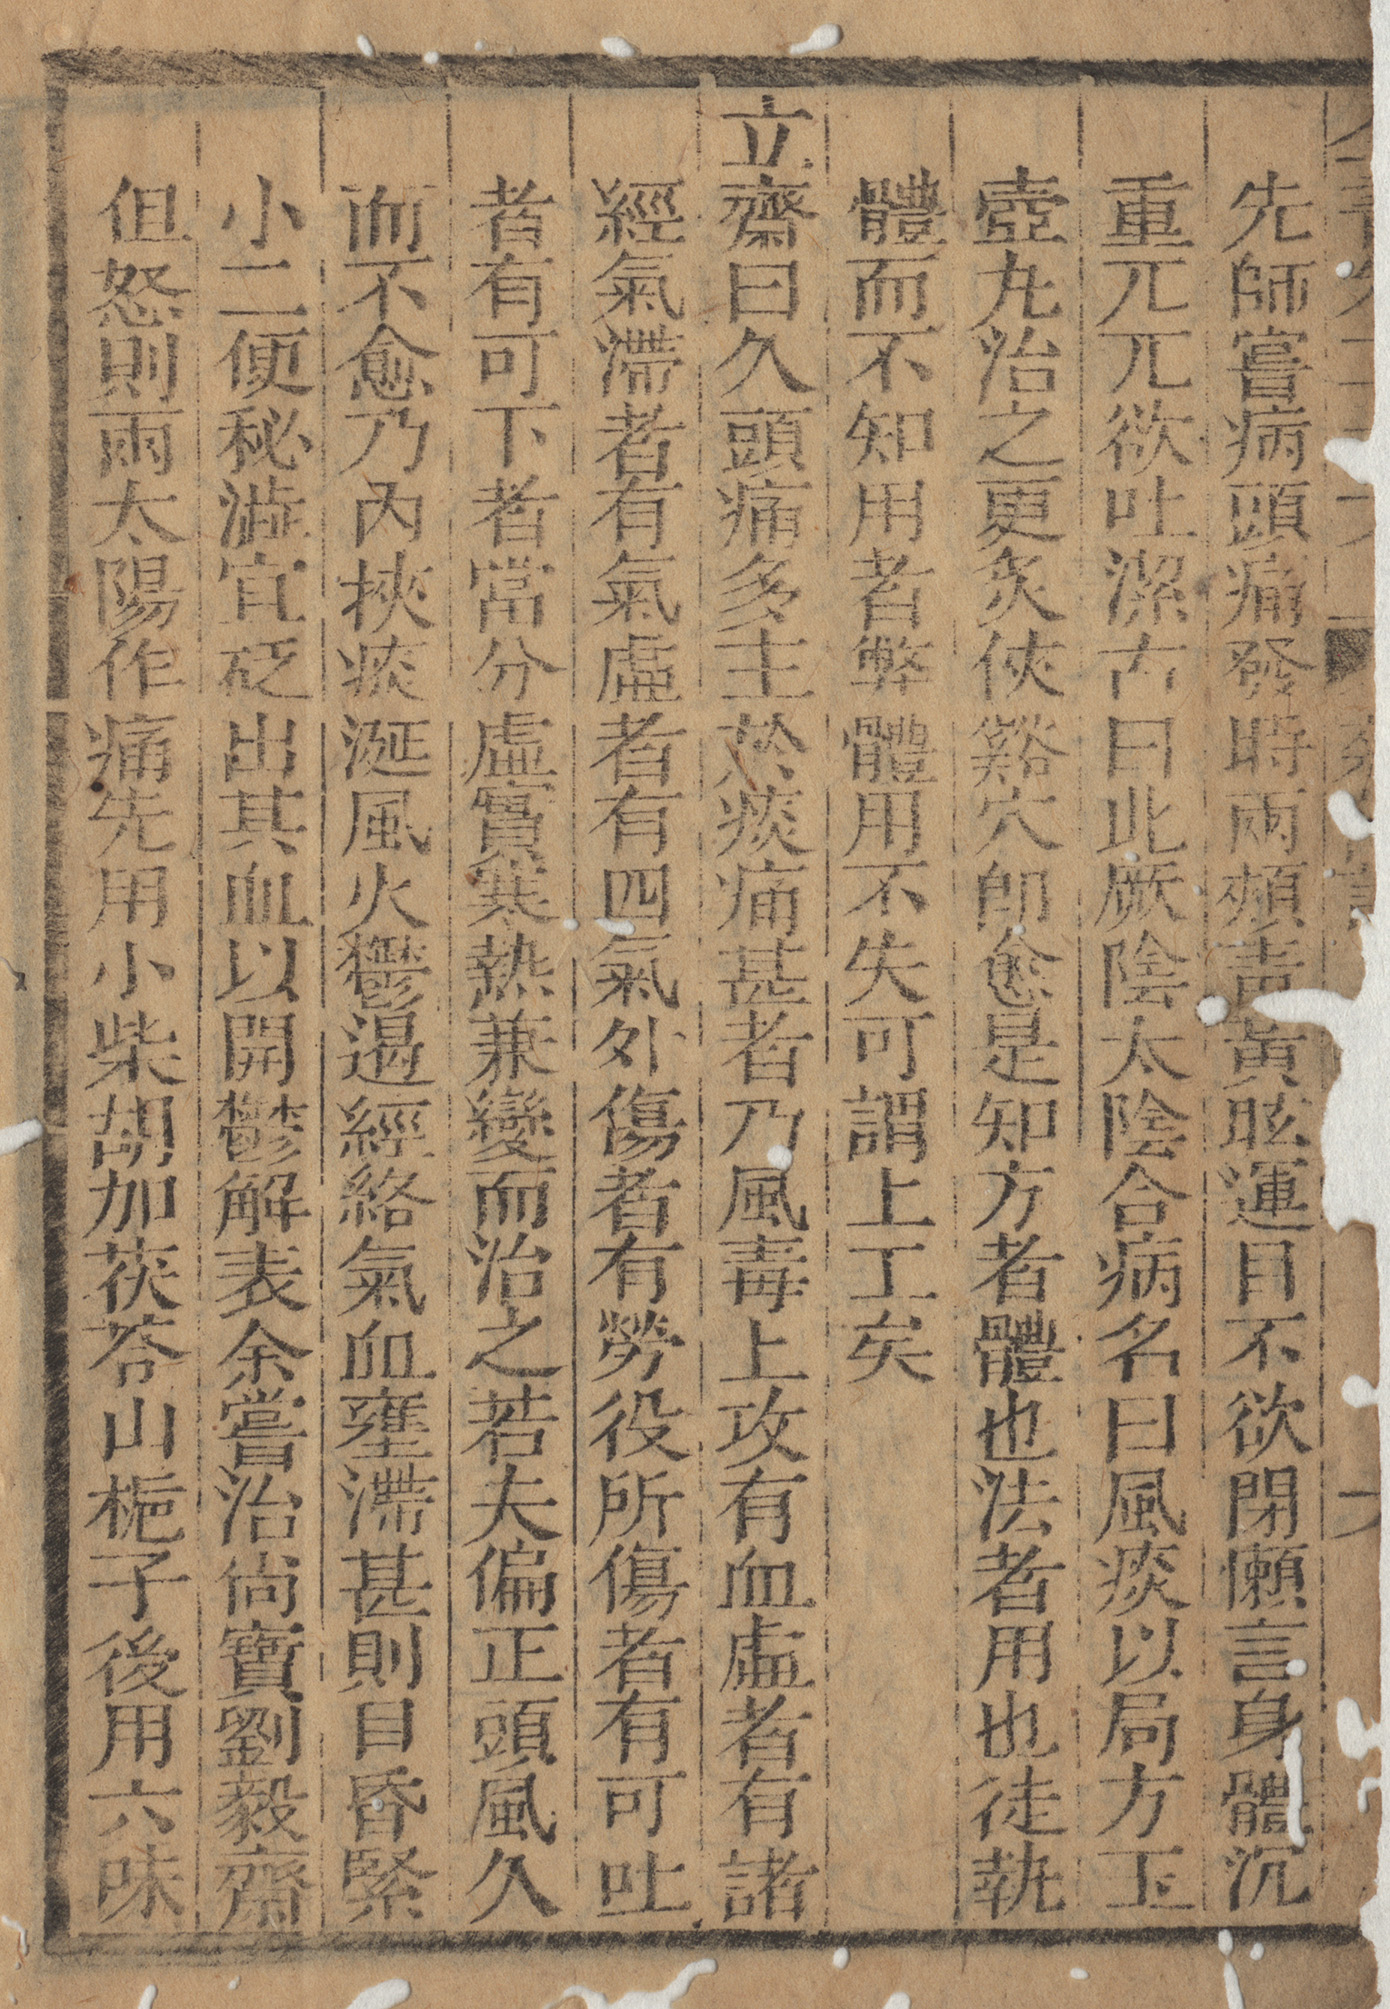 先師嘗病頭痛發時兩頰青黃眩運目不欲閉懶言身體沉
重兀兀欲吐潔古曰此厥陰太陰合病名曰風痰以局方玉
壺丸治之更灸俠谿穴卽愈是知方者體也法者用也徒執
體而不知用者弊體用不失可謂上工矣
立齋曰久頭痛多主於痰痛甚者乃風毒上攻有血虛者有諸
經氣滯者有氣虛者有四氣外傷者有勞役所傷者有可吐
者有可下者當分虛實寒熱兼變而治之若夫偏正頭風久
而不愈乃內挾痰涎風火鬱遏經絡氣血壅滯甚則目昏緊
小二便秘澁宜砭出其血以開鬱解表余嘗治尙寶劉毅齋
但怒則兩太陽作痛先用小柴胡加茯苓山梔子後用六味